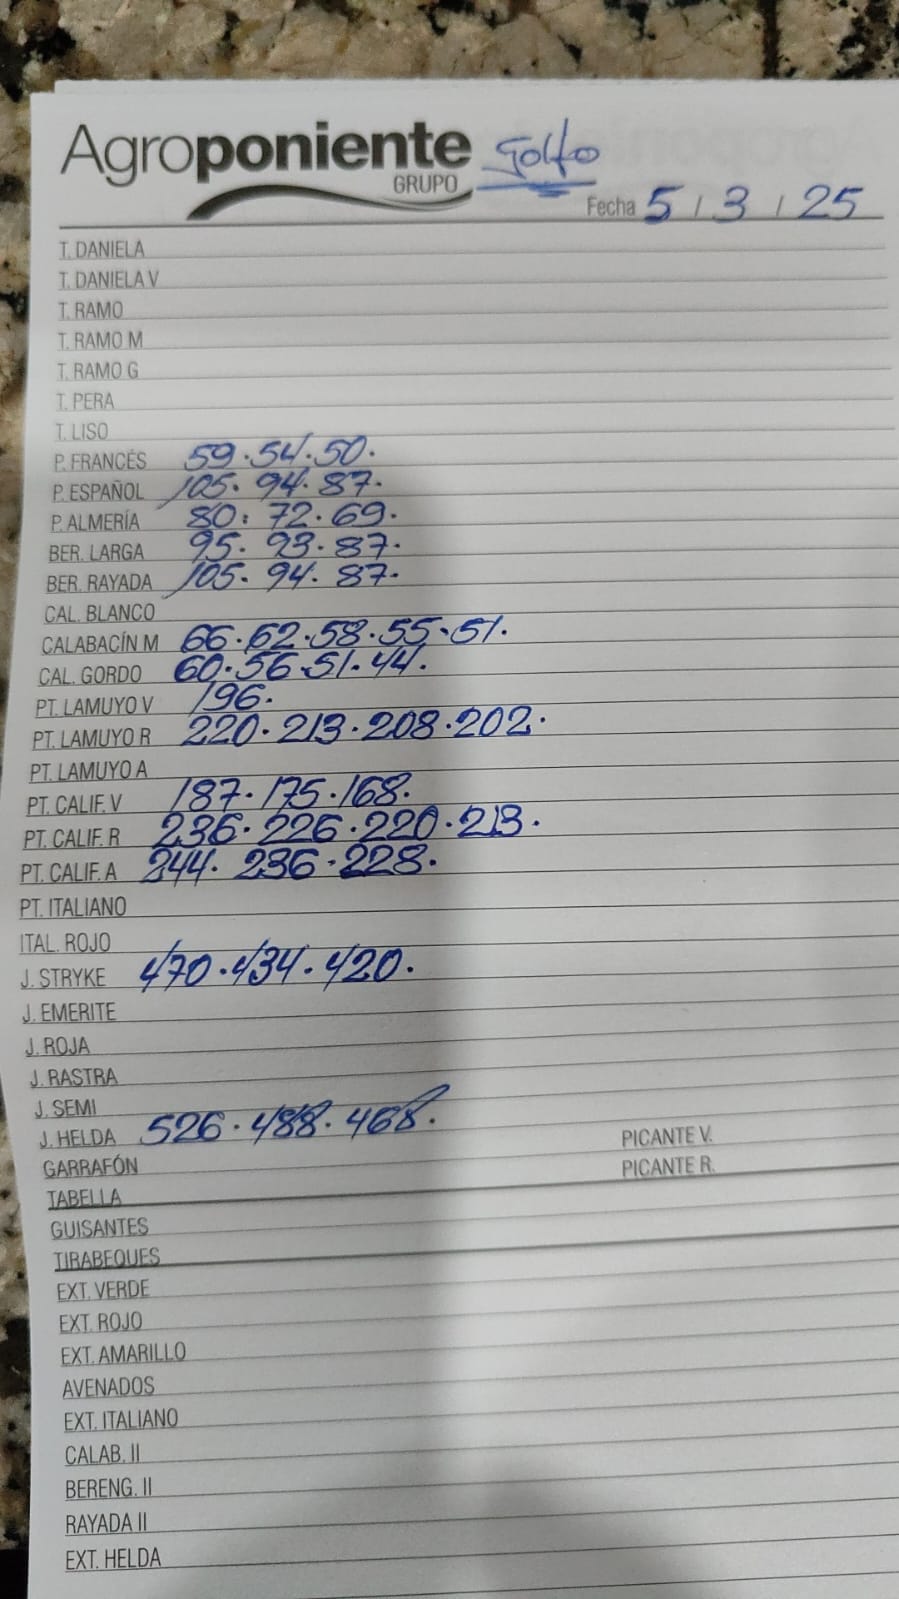 Agroponiente Golfo
GRUPO
Fecha 5 / 3 / 25
T. DANIELA
T. DANIELA V
T. RAMO
T. RAMO M
T. RAMO G
T. PERA
T. LISO
P. FRANCÉS 59.54.50.
P. ESPAÑOL 105. 94. 87.
P. ALMERÍA 80. 72. 69.
BER. LARGA 95. 93. 87.
BER. RAYADA 105. 94. 87.
CAL. BLANCO
CALABACÍN M 66.62.58.55.51.
CAL. GORDO 60.56.51.44.
PT. LAMUYO V 196.
PT. LAMUYO R 220.213.208.202.
PT. LAMUYO A
PT. CALIF. V 187.175.168.
PT. CALIF. R 236.226.220.213.
PT. CALIF. A 244. 236.228.
PT. ITALIANO
ITAL. ROJO
J. STRYKE 470.434.420.
J. EMERITE
J. ROJA
J. RASTRA
J. SEMI
J. HELDA 526.488.468.
PICANTE V.
GARRAFÓN
PICANTE R.
TABELLA
GUISANTES
TIRABEQUES
EXT. VERDE
EXT. ROJO
EXT. AMARILLO
AVENADOS
EXT. ITALIANO
CALAB. II
BERENG. II
RAYADA II
EXT. HELDA